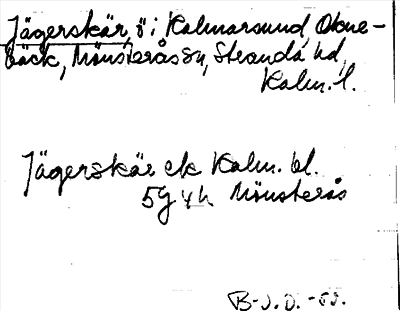 Jägerskär, ö i Kalmarsund, Okne-
bäck, Mönsterås sn, Stranda hd,
Kalm. l.
Jägerskär ek Kalm. bl.
5g 4h Mönsterås
B-J.D. -55.